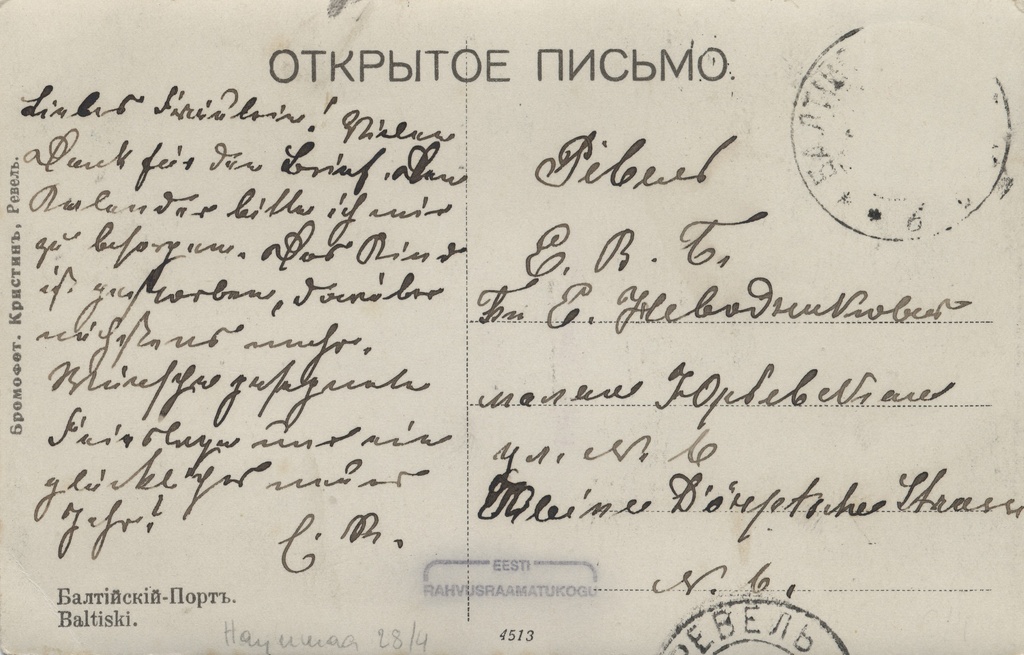 ОТКРЫТОЕ ПИСЬМО.
Liebes Fräulein! Vielen
Dank für den Brief. Den
Kalender bitte ich mir
zu besorgen. Das Kind
ist gestorben, darüber
nächstens mehr.
Wünsche gesegnete
Feiertage und ein
glückliches neues
Jahr!
E. R.
Ревель
Е. В. Б.
Бн Е.
малая Юрьевская
ул. N. 6
Kleine Dörptsche Strasse
N. 6.
Бромофот. Кристинъ, Ревель.
Балтійскій-Портъ.
Baltiski.
4513
EESTI
RAHVUSRAAMATUKOGU
БАЛТІЙ
6
РЕВЕЛЬ
28/4